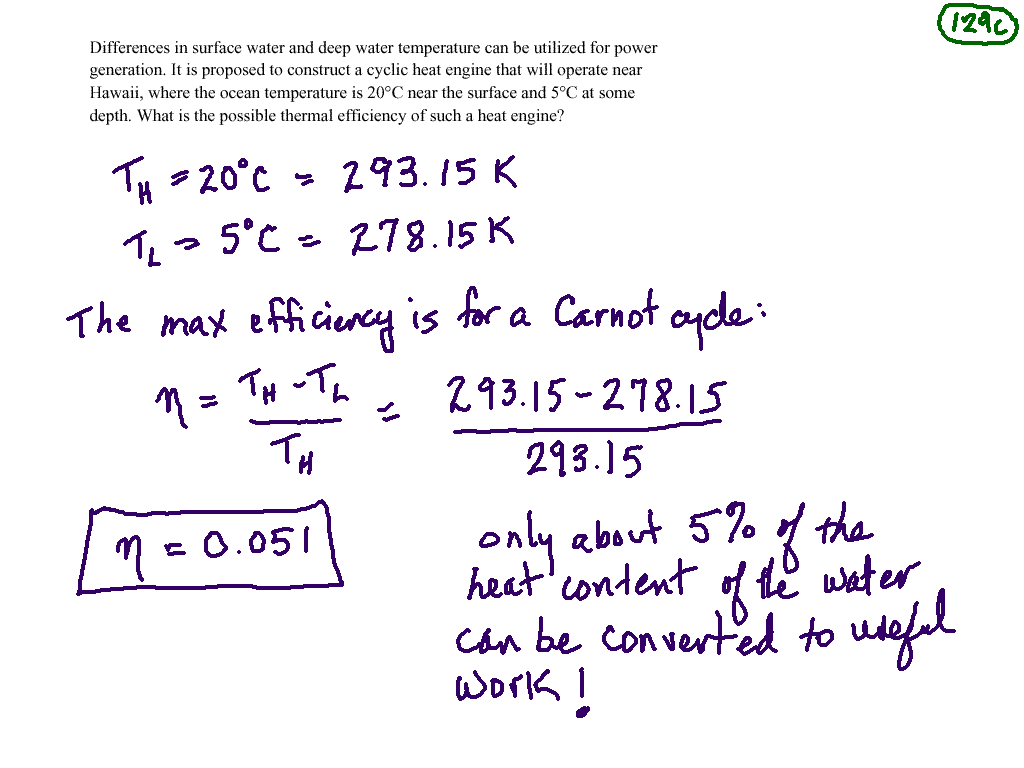 129c
Differences in surface water and deep water temperature can be utilized for power
generation. It is proposed to construct a cyclic heat engine that will operate near
Hawaii, where the ocean temperature is 20°C near the surface and 5°C at some
depth. What is the possible thermal efficiency of such a heat engine?
T_H = 20°C = 293.15 K
T_L = 5°C = 278.15 K
The max efficiency is for a Carnot cycle:
η = (T_H - T_L) / T_H = (293.15 - 278.15) / 293.15
η = 0.051
only about 5% of the
heat content of the water
can be converted to useful
work!